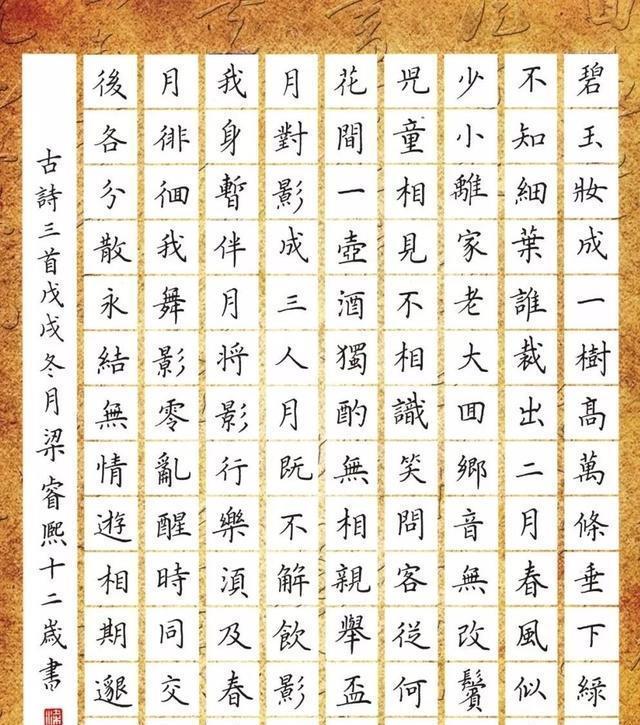 碧玉妝成一樹髙萬條垂下綠
不知細葉誰裁出二月春風似
少小離家老大囬鄉音無改鬢
兒童相見不相識笑問客從何
花間一壺酒獨酌無相親舉盃
月對影成三人月既不解飲影
我身暫伴月將影行樂須及春
月徘徊我舞影零亂醒時同交
後各分散永結無情遊相期邈
古詩三首戊戌冬月梁睿熙十二歲書